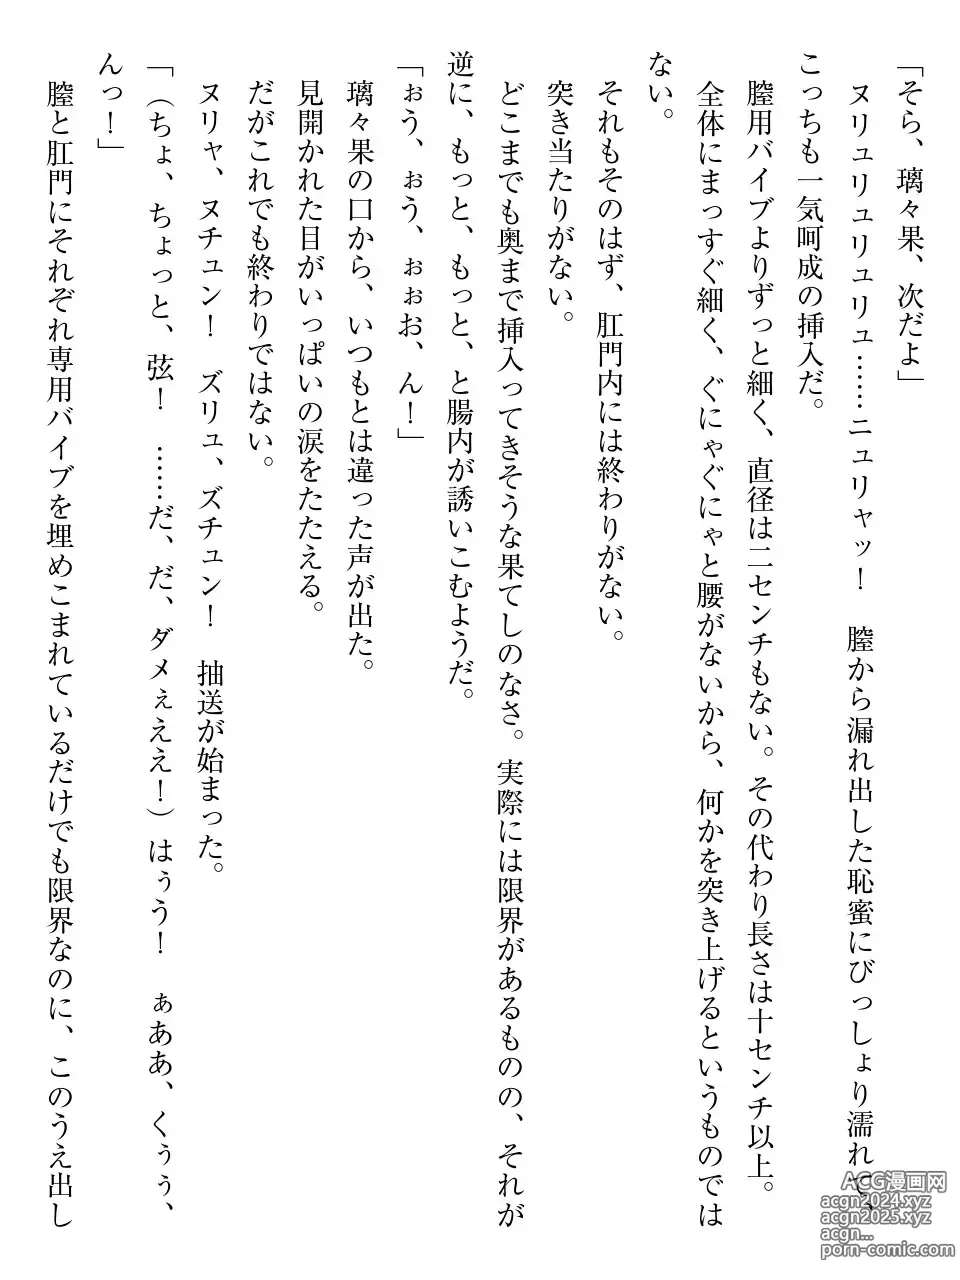 「そら、璃々果、次だよ」
ヌリュリュリュリュ……ニュリャッ！　膣から漏れ出した恥蜜にびっしょり濡れて、
こっちも一気呵成の挿入だ。
膣用バイブよりずっと細く、直径は二センチもない。その代わり長さは十センチ以上。
全体にまっすぐ細く、ぐにゃぐにゃと腰がないから、何かを突き上げるというものでは
ない。
それもそのはず、肛門内には終わりがない。
突き当たりがない。
どこまでも奥まで挿入ってきそうな果てしのなさ。実際には限界があるものの、それが
逆に、もっと、もっと、と腸内が誘いこむようだ。
「ぉう、ぉう、ぉぉお、ん！」
璃々果の口から、いつもとは違った声が出た。
見開かれた目がいっぱいの涙をたたえる。
だがこれでも終わりではない。
ヌリャ、ヌチュン！　ズリュ、ズチュン！　抽送が始まった。
「（ちょ、ちょっと、弦！　……だ、だ、ダメぇええ！）はぅう！　ぁああ、くぅぅ、
んっ！」
膣と肛門にそれぞれ専用バイブを埋めこまれているだけでも限界なのに、このうえ出し
ACG漫画网
acgn2024.xyz
acgn2025.xyz
acgn...
porn-comic.com